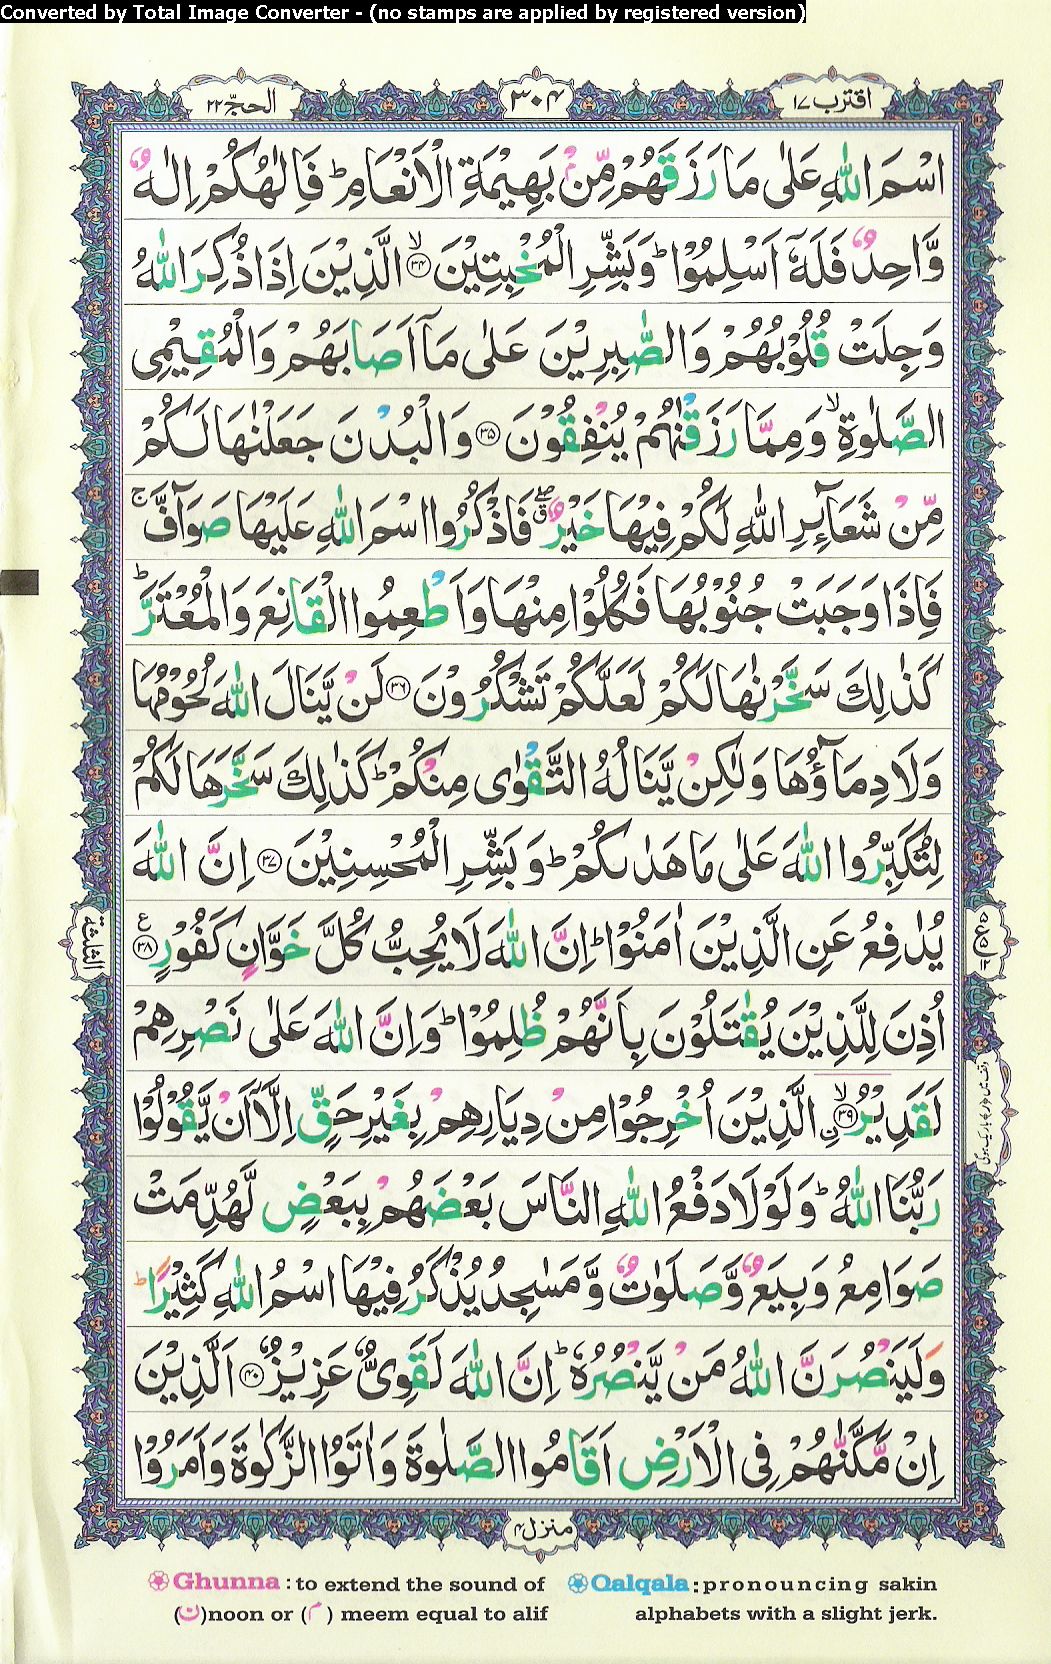 Converted by Total Image Converter - (no stamps are applied by registered version)
اقترب ١٧
٣٠۴
الحجّ ٢٢
اسْمَ اللّٰهِ عَلٰى مَا رَزَقَهُمْ مِّنْۢ بَهِيْمَةِ الْاَنْعَامِ ؕ فَاِلٰهُكُمْ اِلٰهٌ
وَّاحِدٌ فَلَهٗۤ اَسْلِمُوْا ؕ وَبَشِّرِ الْمُخْبِتِيْنَ ۙ﴿٣۴﴾ الَّذِيْنَ اِذَا ذُكِرَ اللّٰهُ
وَجِلَتْ قُلُوْبُهُمْ وَالصّٰبِرِيْنَ عَلٰى مَاۤ اَصَابَهُمْ وَالْمُقِيْمِى
الصَّلٰوةِ ۙ وَمِمَّا رَزَقْنٰهُمْ يُنْفِقُوْنَ ﴿٣۵﴾ وَالْبُدْنَ جَعَلْنٰهَا لَكُمْ
مِّنْ شَعَآئِرِ اللّٰهِ لَكُمْ فِيْهَا خَيْرٌ ۖق فَاذْكُرُوا اسْمَ اللّٰهِ عَلَيْهَا صَوَآفَّ ۚ
فَاِذَا وَجَبَتْ جُنُوْبُهَا فَكُلُوْا مِنْهَا وَاَطْعِمُوا الْقَانِعَ وَالْمُعْتَرَّ ؕ
كَذٰلِكَ سَخَّرْنٰهَا لَكُمْ لَعَلَّكُمْ تَشْكُرُوْنَ ﴿٣٦﴾ لَنْ يَّنَالَ اللّٰهَ لُحُوْمُهَا
وَلَا دِمَآؤُهَا وَلٰكِنْ يَّنَالُهُ التَّقْوٰى مِنْكُمْ ؕ كَذٰلِكَ سَخَّرَهَا لَكُمْ
لِتُكَبِّرُوا اللّٰهَ عَلٰى مَا هَدٰىكُمْ ؕ وَبَشِّرِ الْمُحْسِنِيْنَ ﴿٣٧﴾ اِنَّ اللّٰهَ
يُدٰفِعُ عَنِ الَّذِيْنَ اٰمَنُوْا ؕ اِنَّ اللّٰهَ لَا يُحِبُّ كُلَّ خَوَّانٍ كَفُوْرٍ ﴿٣٨﴾ ع
اُذِنَ لِلَّذِيْنَ يُقٰتَلُوْنَ بِاَنَّهُمْ ظُلِمُوْا ؕ وَاِنَّ اللّٰهَ عَلٰى نَصْرِهِمْ
لَقَدِيْرُ ۙ﴿٣٩﴾ نِ الَّذِيْنَ اُخْرِجُوْا مِنْ دِيَارِهِمْ بِغَيْرِ حَقٍّ اِلَّاۤ اَنْ يَّقُوْلُوْا
رَبُّنَا اللّٰهُ ؕ وَلَوْلَا دَفْعُ اللّٰهِ النَّاسَ بَعْضَهُمْ بِبَعْضٍ لَّهُدِّمَتْ
صَوَامِعُ وَبِيَعٌ وَّصَلَوٰتٌ وَّمَسٰجِدُ يُذْكَرُ فِيْهَا اسْمُ اللّٰهِ كَثِيْرًا ؕ
وَلَيَنْصُرَنَّ اللّٰهُ مَنْ يَّنْصُرُهٗ ؕ اِنَّ اللّٰهَ لَقَوِىٌّ عَزِيْزٌ ﴿۴٠﴾ اَلَّذِيْنَ
اِنْ مَّكَّنّٰهُمْ فِى الْاَرْضِ اَقَامُوا الصَّلٰوةَ وَاٰتَوُا الزَّكٰوةَ وَاَمَرُوْا
الثلٰثة
منزل ۴
Ghunna : to extend the sound of
(ن)noon or (م) meem equal to alif
Qalqala : pronouncing sakin
alphabets with a slight jerk.